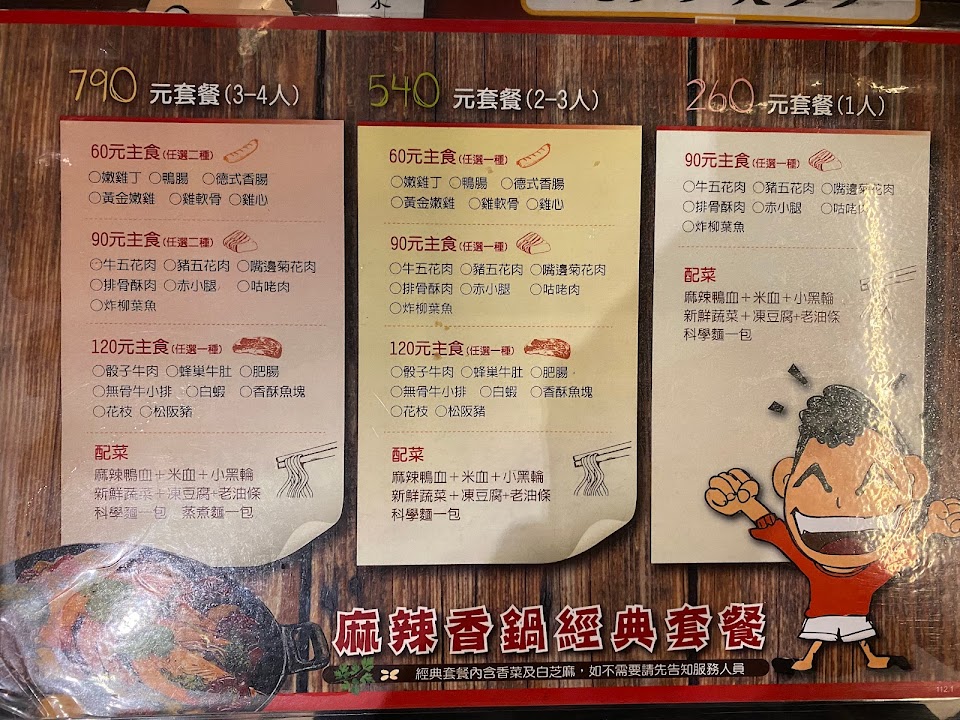 790 元套餐(3-4人)
60元主食(任選二種)
○嫩雞丁 ○鴨腸 ○德式香腸
○黃金嫩雞 ○雞軟骨 ○雞心
90元主食(任選二種)
○牛五花肉 ○豬五花肉 ○嘴邊菊花肉
○排骨酥肉 ○赤小腿 ○咕咾肉
○炸柳葉魚
120元主食(任選一種)
○骰子牛肉 ○蜂巢牛肚 ○肥腸
○無骨牛小排 ○白蝦 ○香酥魚塊
○花枝 ○松阪豬
配菜
麻辣鴨血+米血+小黑輪
新鮮蔬菜+凍豆腐+老油條
科學麵一包 蒸煮麵一包
540 元套餐(2-3人)
60元主食(任選一種)
○嫩雞丁 ○鴨腸 ○德式香腸
○黃金嫩雞 ○雞軟骨 ○雞心
90元主食(任選一種)
○牛五花肉 ○豬五花肉 ○嘴邊菊花肉
○排骨酥肉 ○赤小腿 ○咕咾肉
○炸柳葉魚
120元主食(任選一種)
○骰子牛肉 ○蜂巢牛肚 ○肥腸
○無骨牛小排 ○白蝦 ○香酥魚塊
○花枝 ○松阪豬
配菜
麻辣鴨血+米血+小黑輪
新鮮蔬菜+凍豆腐+老油條
科學麵一包
260 元套餐(1人)
90元主食(任選一種)
○牛五花肉 ○豬五花肉 ○嘴邊菊花肉
○排骨酥肉 ○赤小腿 ○咕咾肉
○炸柳葉魚
配菜
麻辣鴨血+米血+小黑輪
新鮮蔬菜+凍豆腐+老油條
科學麵一包
麻辣香鍋經典套餐
經典套餐內含香菜及白芝麻,如不需要請先告知服務人員
112.1